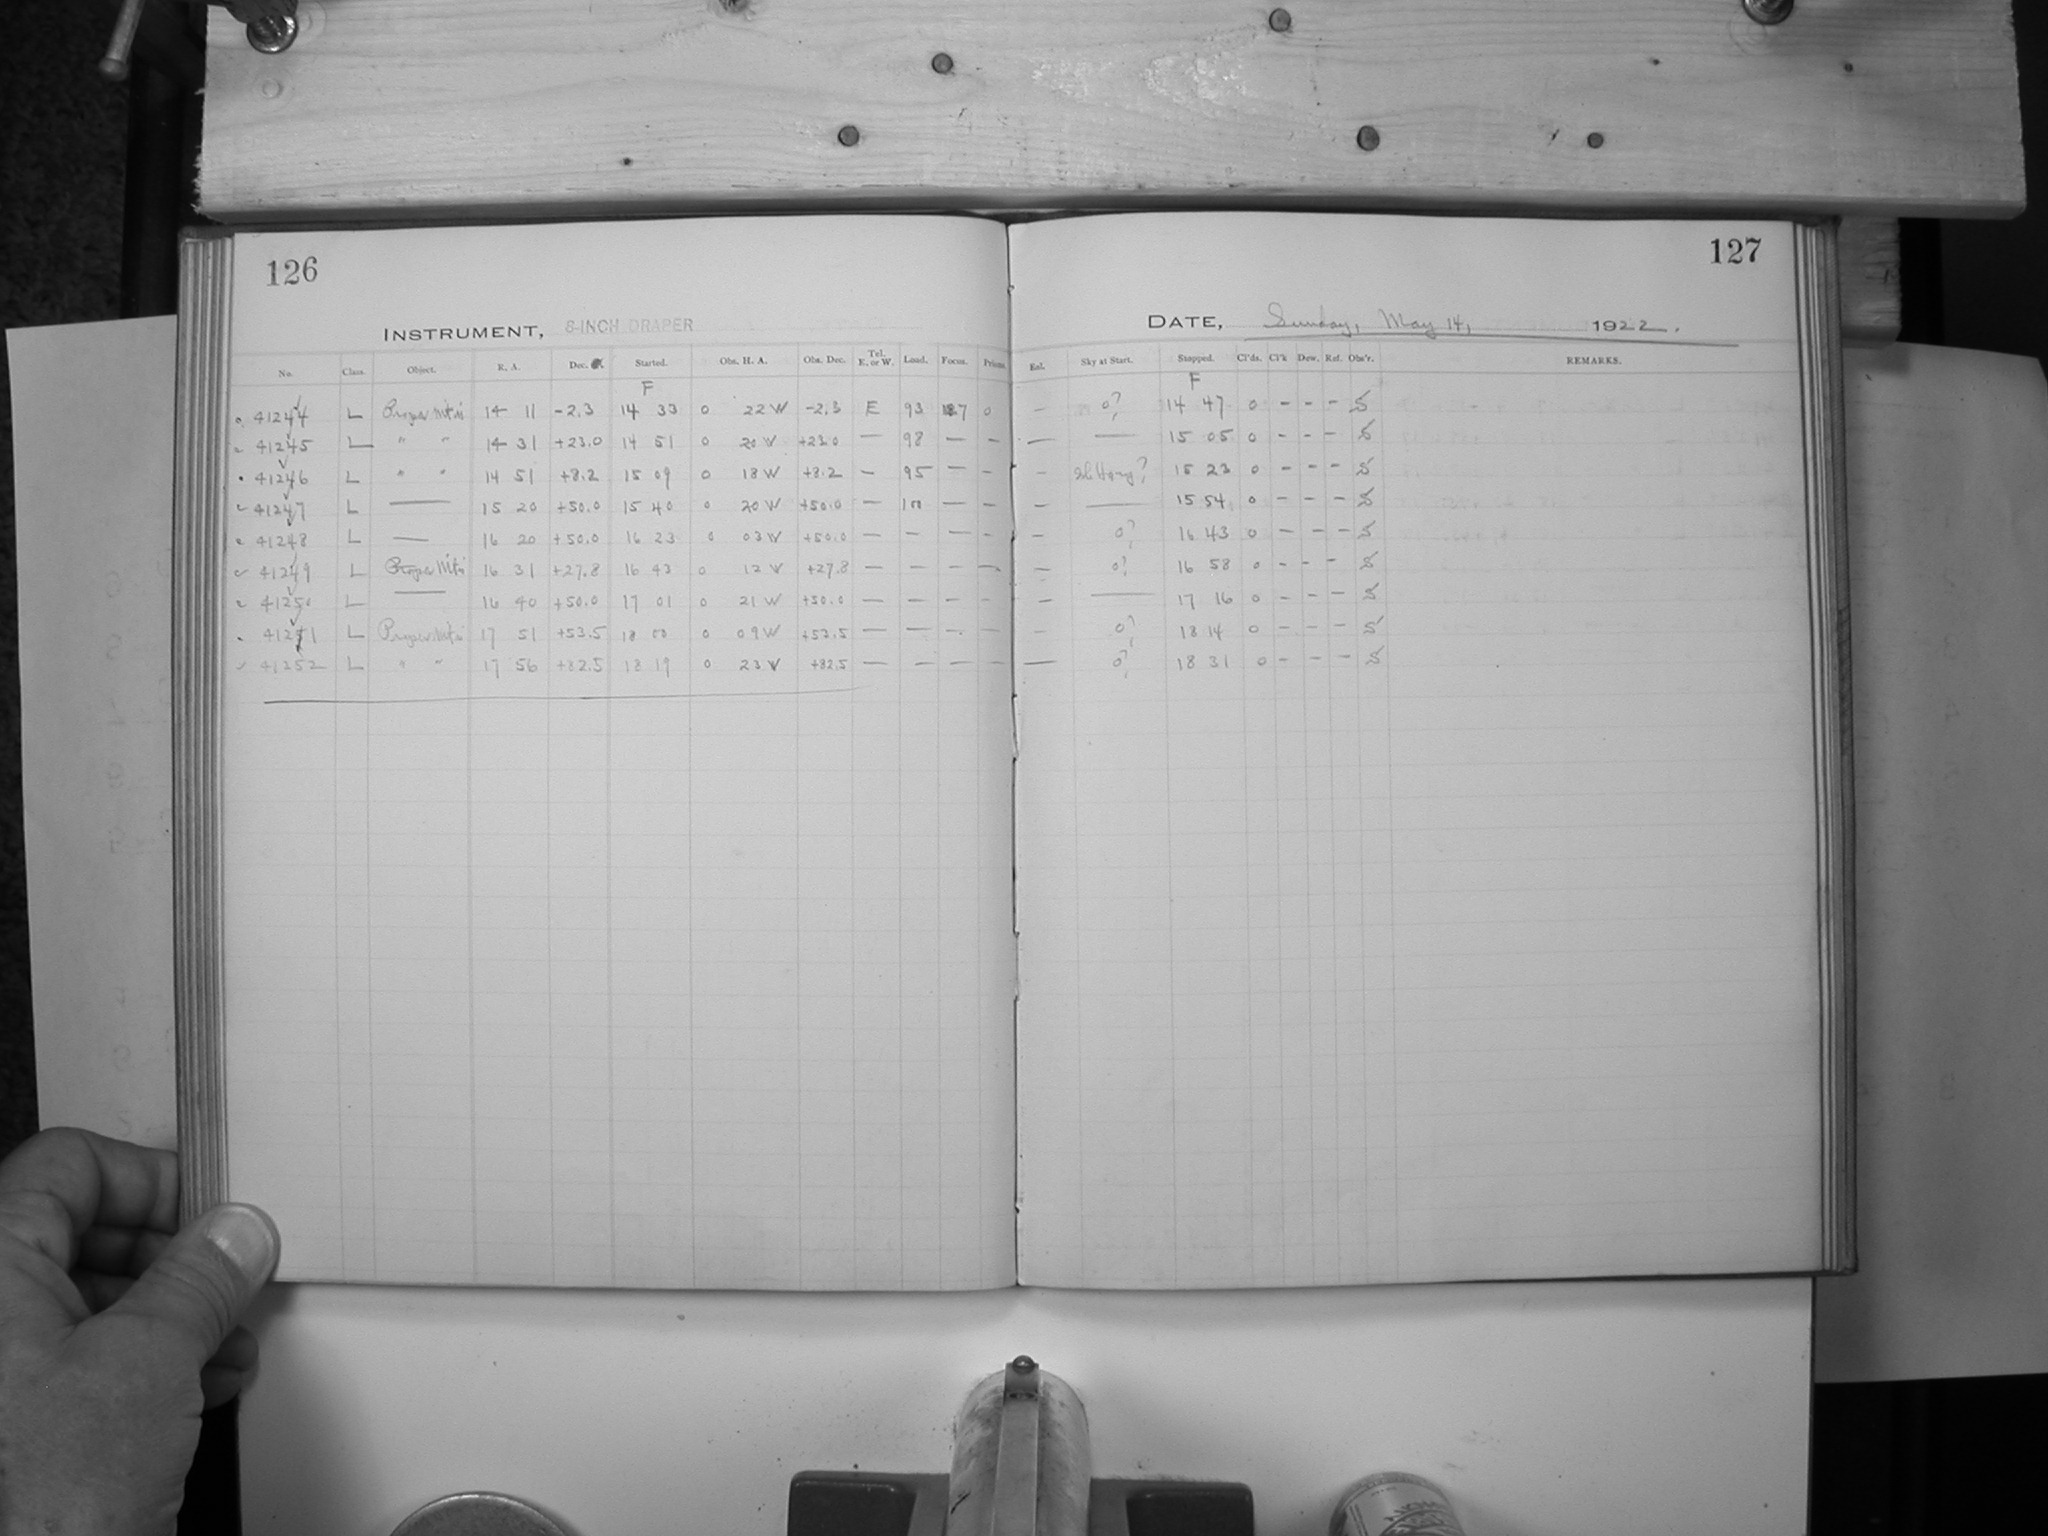 126
127
INSTRUMENT, 8-INCH DRAPER
DATE, Sunday, May 14, 1922.
No. Class. Object. R. A. Dec. Started. Obs. H. A. Obs. Dec. Tel. E. or W. Load. Focus. Prisms Enl. Sky at Start. Stopped. Cl'ds. Cl'k Dew. Ref. Obs'r. REMARKS.
F F
41244 L Proper Mt'n 14 11 -2.3 14 33 0 22 W -2.3 E 93 0 - 0? 14 47 0 - - - S
41245 L " " 14 31 +23.0 14 51 0 20 W +23.0 — 98 — — — — 15 05 0 - - - S
41246 L " " 14 51 +8.2 15 09 0 18 W +8.2 — 95 — - - sl Hazy? 15 23 0 - - - S
41247 L — 15 20 +50.0 15 40 0 20 W +50.0 — 100 — — — — 15 54 0 - - - S
41248 L — 16 20 +50.0 16 23 0 03 W +50.0 — — — — — 0? 16 43 0 - - - S
41249 L Proper Mt'n 16 31 +27.8 16 43 0 12 W +27.8 — — — — — 0? 16 58 0 - - - S
41250 L — 16 40 +50.0 17 01 0 21 W +50.0 — — — — — — 17 16 0 - - - S
41251 L Proper Mt'n 17 51 +53.5 18 00 0 09 W +53.5 — — - - - 0? 18 14 0 - - - S
41252 L " " 17 56 +82.5 18 19 0 23 W +82.5 — — — — — 0? 18 31 0 - - - S